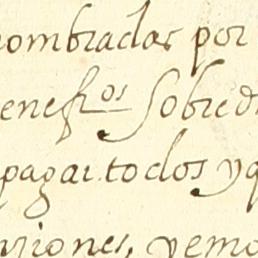 nombradas por
enefros sobred
pagar todos yq
nsiones, yemo